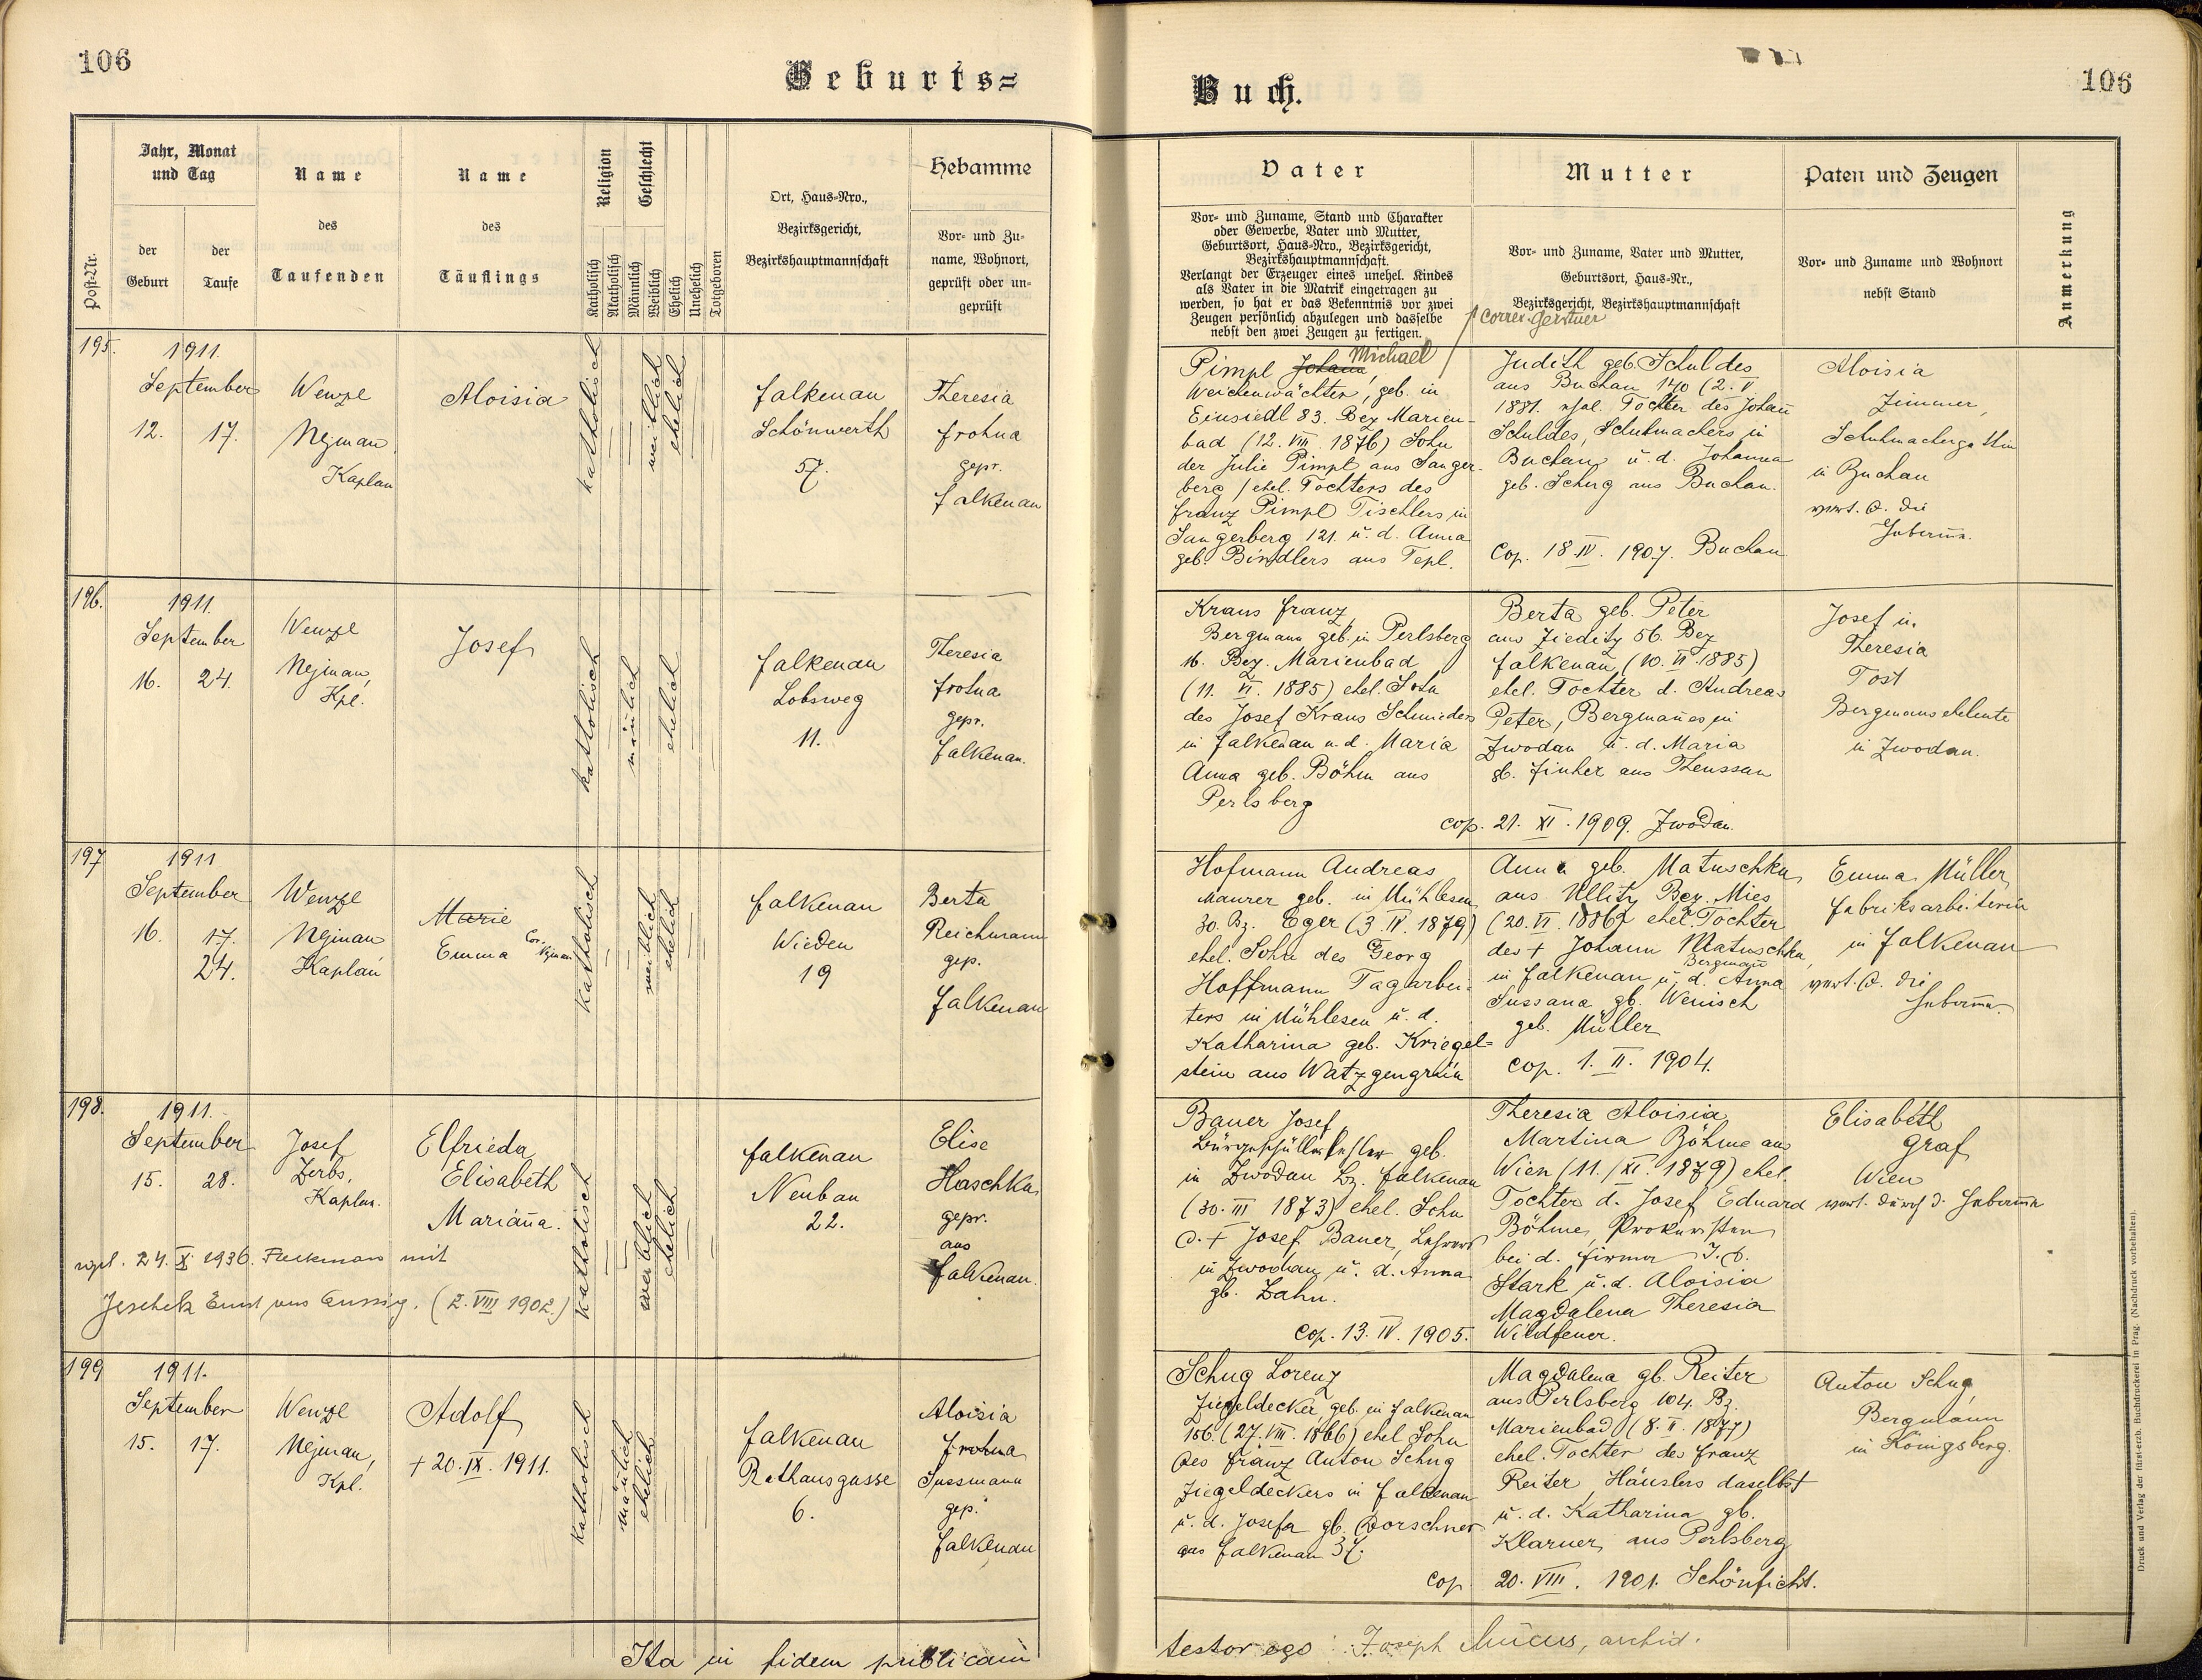 106
Geburts=
Jahr, Monat
und Tag
Name
Name
Religion
Geschlecht
Hebamme
Ort, Haus-Nro.,
Bezirksgericht,
Bezirkshauptmannschaft
des
des
Post-Nr.
der
Geburt
der
Taufe
Taufenden
Täuflings
Katholisch
Akatholisch
Männlich
Weiblich
Ehelich
Unehelich
Totgeboren
Vor- und Zu-
name, Wohnort,
geprüft oder un-
geprüft
195.
1911.
September
12. 17.
Wenzl
Nejman
Kaplan
Aloisia
katholisch
weiblich
ehelich
Falkenau
Schönwerth
57.
Theresia
Frohna
gepr.
Falkenau
196.
1911.
September
16. 24.
Wenzl
Nejman,
Kpl.
Josef
katholisch
mänlich
ehelich
Falkenau
Lobsweg
11.
Theresia
Frohna
gepr.
Falkenau.
197
1911
September
16. 17.
24.
Wenzl
Nejman
Kaplan
Marie
Emma Cor. Nejman
katholisch
weiblich
ehelich
Falkenau
Wieden
19
Berta
Reichmann
gep.
Falkenau
198.
1911.
September
15. 28.
Josef
Zerbs,
Kaplan.
Elfrieda
Elisabeth
Mariaña.
24. X. 1936. mit
Jeschek Ernst aus Aussig. (2. VIII 1902.)
katholisch
weiblich
ehelich
Falkenau
Neubau
22.
Elise
Haschka
gepr.
aus
Falkenau.
199
1911.
September
15. 17.
Wenzl
Nejman,
Kpl.
Adolf
+ 20. IX. 1911.
katholisch
mänlich
ehelich
Falkenau
Rathausgasse
6.
Aloisia
Frohna
Sussmann
gep.
Falkenau
Ita in fidem publicam
Buch.
106
Vater
Mutter
Paten und Zeugen
Anmerkung
Vor- und Zuname, Stand und Charakter
oder Gewerbe, Vater und Mutter,
Geburtsort, Haus-Nro., Bezirksgericht,
Bezirkshauptmannschaft.
Verlangt der Erzeuger eines unehel. Kindes
als Vater in die Matrik eingetragen zu
werden, so hat er das Bekenntnis vor zwei
Zeugen persönlich abzulegen und dasselbe
nebst den zwei Zeugen zu fertigen.
Vor- und Zuname, Vater und Mutter,
Geburtsort, Haus-Nr.,
Bezirksgericht, Bezirkshauptmannschaft
Vor- und Zuname und Wohnort
nebst Stand
Correx. Gerstner
Pimpl Johann Michael
Weichenwächter, geb. in
Einsiedl 83. Bez. Marien-
bad (12. VIII. 1876) Sohn
der Julie Pimpl aus Sanger-
berg / ehel. Tochters des
Franz Pimpl Tischlers in
Sangerberg 121. u. d. Anna
geb. Bindlers aus Tepl.
Judith geb. Schuldes
aus Buchau 140 (2. V
1881. Tochter des Johañ
Schuldes, Schuhmachers in
Buchau u. d. Johanna
geb. Schug aus Buchau.
Cop. 18. IV. 1907. Buchau
Aloisia
Zimmer,
Schuhmachergattin
in Buchau
vert. d. die
Hebame.
Kraus Franz,
Bergmann geb. in Perlsberg
16. Bez. Marienbad
(11. VI. 1885) ehel. Sohn
des Josef Kraus Schmieders
in Falkenau u. d. Maria
Anna geb. Böhm aus
Perlsberg
Berta geb. Peter
aus Zieditz 56. Bez
Falkenau, (10. VI. 1885)
ehel. Tochter d. Andreas
Peter, Bergmañes in
Zwodau u. d. Maria
gb. Finker aus Theussau
cop. 21. XI. 1909. Zwodau.
Josef u.
Theresia
Tost
Bergmanseheleute
in Zwodau.
Hofmann Andreas
Maurer geb. in Mühlesen
30. Bz. Eger (3. IV. 1879)
ehel. Sohn des Georg
Hoffmann Tagarbei-
ters in Mühlesen u. d.
Katharina geb. Kriegel-
stein aus Watzgengrün
Anna geb. Matuschka
aus Ullitz Bez. Mies
(20. VI. 1886) ehel. Tochter
des + Johann Matuschka,
Bergmañ
in Falkenau u. d. Anna
Sussana gb. Wenisch
geb. Müller
cop. 1. II. 1904.
Emma Müller
Fabriksarbeiterin
in Falkenau
vert. d. die
Hebame.
Bauer Josef,
Bürgerschullehrer geb.
in Zwodau Bz. Falkenau
(30. III 1873) ehel. Sohn
d. + Josef Bauer, Lehrers
in Zwodau u. d. Anna
gb. Zahn.
Cop. 13. IV. 1905.
Theresia Aloisia
Martina Böhme aus
Wien (11. XI. 1879) ehel.
Tochter d. Josef Eduard
Böhme, Prokuristen
bei d. Firma J. D.
Stark u. d. Aloisia
Magdalena Theresia
Wildfeuer.
Elisabeth
Graf
Wien
vert. durch d. Hebame
Schug Lorenz
Ziegeldecker, geb. in Falkenau
156. (27. VIII. 1866) ehel Sohn
des Franz Anton Schug
Ziegeldeckers in Falkenau
u. d. Josefa gb. Dorschner
aus Falkenau 37.
Magdalena gb. Reiter
aus Perlsberg 104. Bz.
Marienbad (8. II. 1877)
ehel. Tochter des Franz
Reiter, Häuslers daselbst
u. d. Katharina gb.
Klarner aus Perlsberg
Cop. 20. VIII. 1901. Schönficht.
Anton Schug,
Bergmann
in Königsberg.
testor ego: Joseph archid.
Druck und Verlag der fürst-erzb. Buchdruckerei in Prag. (Nachdruck vorbehalten).